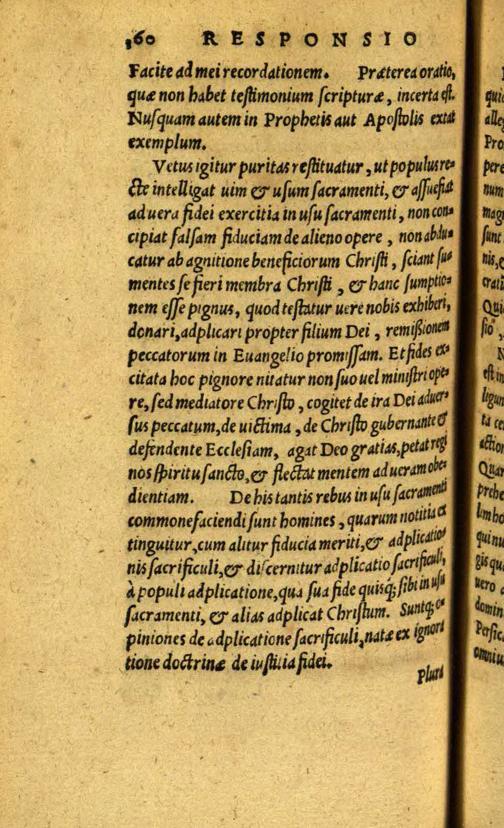 160 RESPONSIO
Facite ad mei recordationem. Præterea oratio,
quæ non habet testimonium scripturæ, incerta est.
Nusquam autem in Prophetis aut Apostolis extat
exemplum.
Vetus igitur puritas restituatur, ut populus re-
cte intelligat uim & usum sacramenti, & assuefiat
ad uera fidei exercitia in usu sacramenti, non con-
cipiat falsam fiduciam de alieno opere, non abdu-
catur ab agnitione beneficiorum Christi, sciant su-
mentes se fieri membra Christi, & hanc sumptio-
nem esse pignus, quod testatur uere nobis exhiberi,
donari, adplicari propter filium Dei, remißionem
peccatorum in Euangelio promissam. Et fides ex-
citata hoc pignore nitatur non suo uel ministri ope-
re, sed mediatore Christo, cogitet de ira Dei aduer-
sus peccatum, de uictima, de Christo gubernante &
defendente Ecclesiam, agat Deo gratias, petat regi
nos spiritu sancto, & flectat mentem ad ueram obe-
dientiam. De his tantis rebus in usu sacramenti
commonefaciendi sunt homines, quarum notitia ex
tinguitur, cum alitur fiducia meriti, & adplicatio-
nis sacrificuli, & discernitur adplicatio sacrificuli,
à populi adplicatione, qua sua fide quisq; sibi in usu
sacramenti, & alias adplicat Christum. Suntq; o-
piniones de adplicatione sacrificuli, natæ ex ignora
tione doctrinæ de iustitia fidei.
Plura